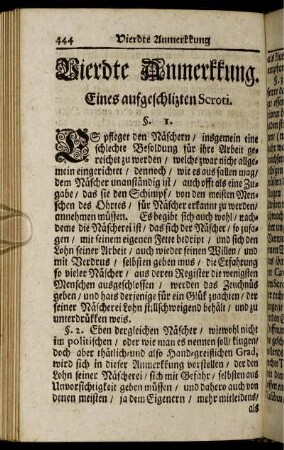 444 Vierdte Anmerkkung
Vierdte Anmerkkung.
Eines aufgeschlizten Scroti.
§. 1.
ES pfleget den Näschern / insgemein eine
schlechte Besoldung für ihre Arbeit ge-
reichet zu werden / welche zwar nicht allge-
mein eingerichtet / dennoch / wie es aus fallen mag /
dem Näscher unanständig ist / auch offt als eine Zu-
gabe / das sie den Schimpf / von den meisten Men-
schen des Ohrtes / für Näscher erkann zu werden /
annehmen müssen. Es begibt sich auch wohl / nach-
deme die Näscherei ist / das sich der Näscher / so zusa-
gen / mit seinem eigenen Fette bedript / und sich den
Lohn seiner Arbeit / auch wieder seinen Willen / und
mit Verdrus / selbsten geben mus / die Erfahrung
so vieler Näscher / aus deren Register die wenigsten
Menschen ausgeschlossen / werden das Zeuchnüs
geben / und hats der jenige für ein Glük zuachten / der
seiner Näscherei Lohn stillschweigend behält / und zu
unterdrükken weis.
§. 2. Eben dergleichen Näscher / wiewohl nicht
im politischen / oder wie man es nennen soll / klugen /
doch aber thätlich-und also Handgreiflichen Grad,
wird sich in dieser Anmerkkung vorstellen / der den
Lohn seiner Näscherei / sich mit Gefahr / selbsten aus
Unvorsichtigkeit geben müssen / und dahero auch von
denen meisten / ja dem Eigenern / mehr mitleidens /
als